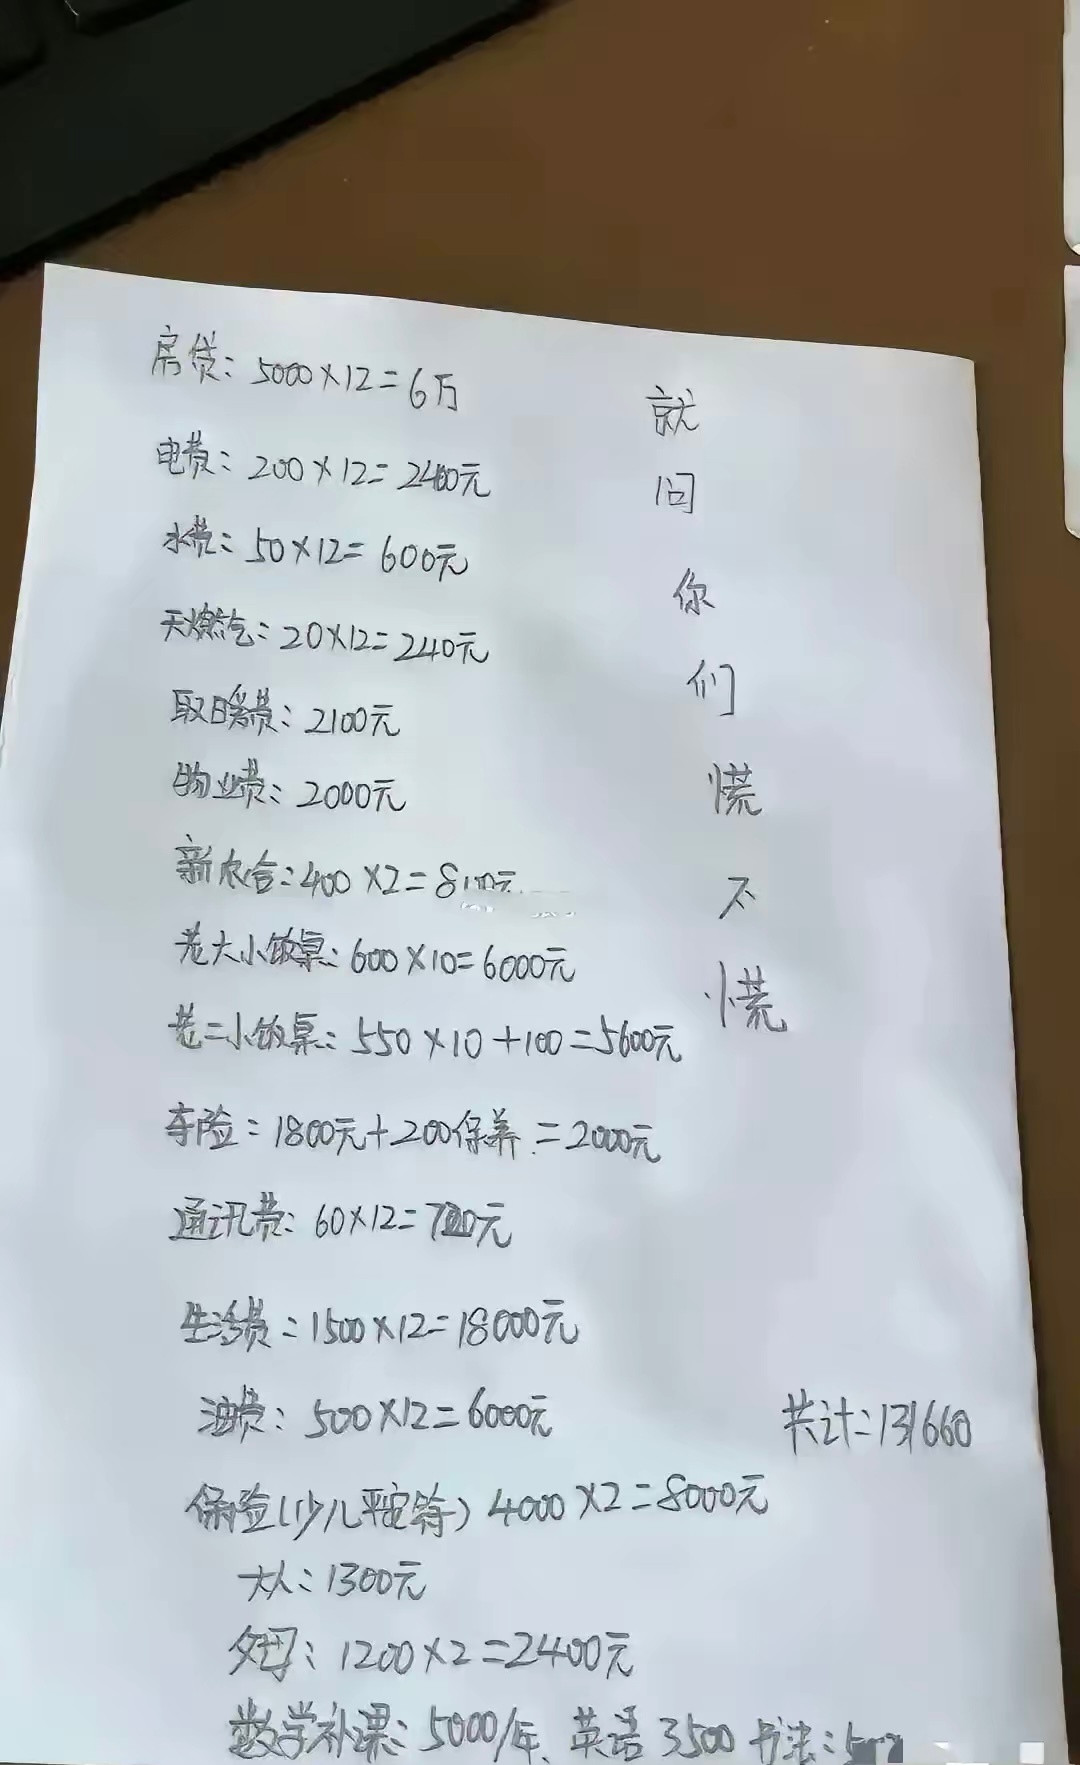 房贷：5000×12=6万
电费：200×12=2400元
水费：50×12=600元
天燃气：20×12=240元
取暖费：2100元
物业费：2000元
新农合：400×2=800元
老大小饭桌：600×10=6000元
老二小饭桌：550×10+100=5600元
车险：1800元+200保养=2000元
通讯费：60×12=720元
生活费：1500×12=18000元
油费：500×12=6000元
保险(少儿平安符) 4000×2=8000元
大人：1300元
父母：1200×2=2400元
数学补课：5000/年、英语3500 书法：
就问你们慌不慌
共计：131660